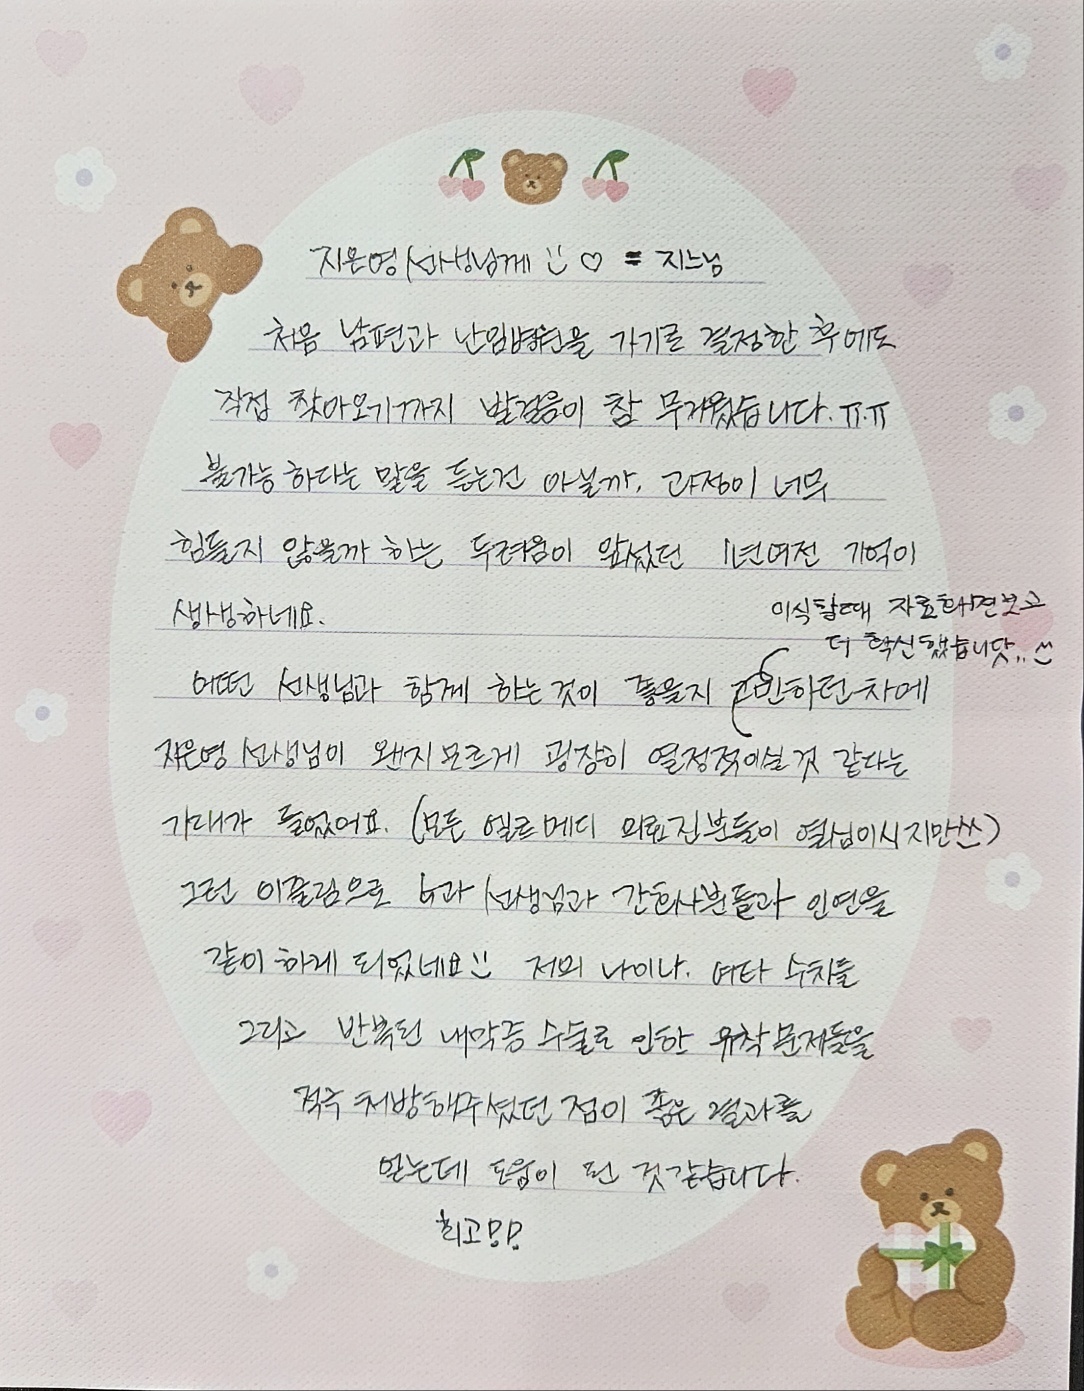 지은영 선생님께 :) ♡ = 지느님
처음 남편과 난임병원을 가기로 결정한 후에도
직접 찾아오기까지 발걸음이 참 무거웠습니다. ㅠ.ㅠ
불가능하다는 말을 듣는건 아닐까, 과정이 너무
힘들지 않을까 하는 두려움이 앞섰던 1년여전 기억이
생생하네요.
이식할때 자료화면보고
더 확신했습니닷,, ^^
어떤 선생님과 함께 하는것이 좋을지 고민하던 차에
지은영 선생님이 왠지모르게 굉장히 열정적이실것 같다는
기대가 들었어요. (모든 엘르메디 의료진분들이 열심이시지만^^)
그런 이끌림으로 6과 선생님과 간호사분들과 인연을
같이 하게 되었네요 :) 저의 나이나, 여타 수치들
그리고 반복된 내막증 수술로 인한 유착 문제들을
적극 처방해주셨던 점이 좋은 결과를
얻는데 도움이 된 것 같습니다.
최고!!